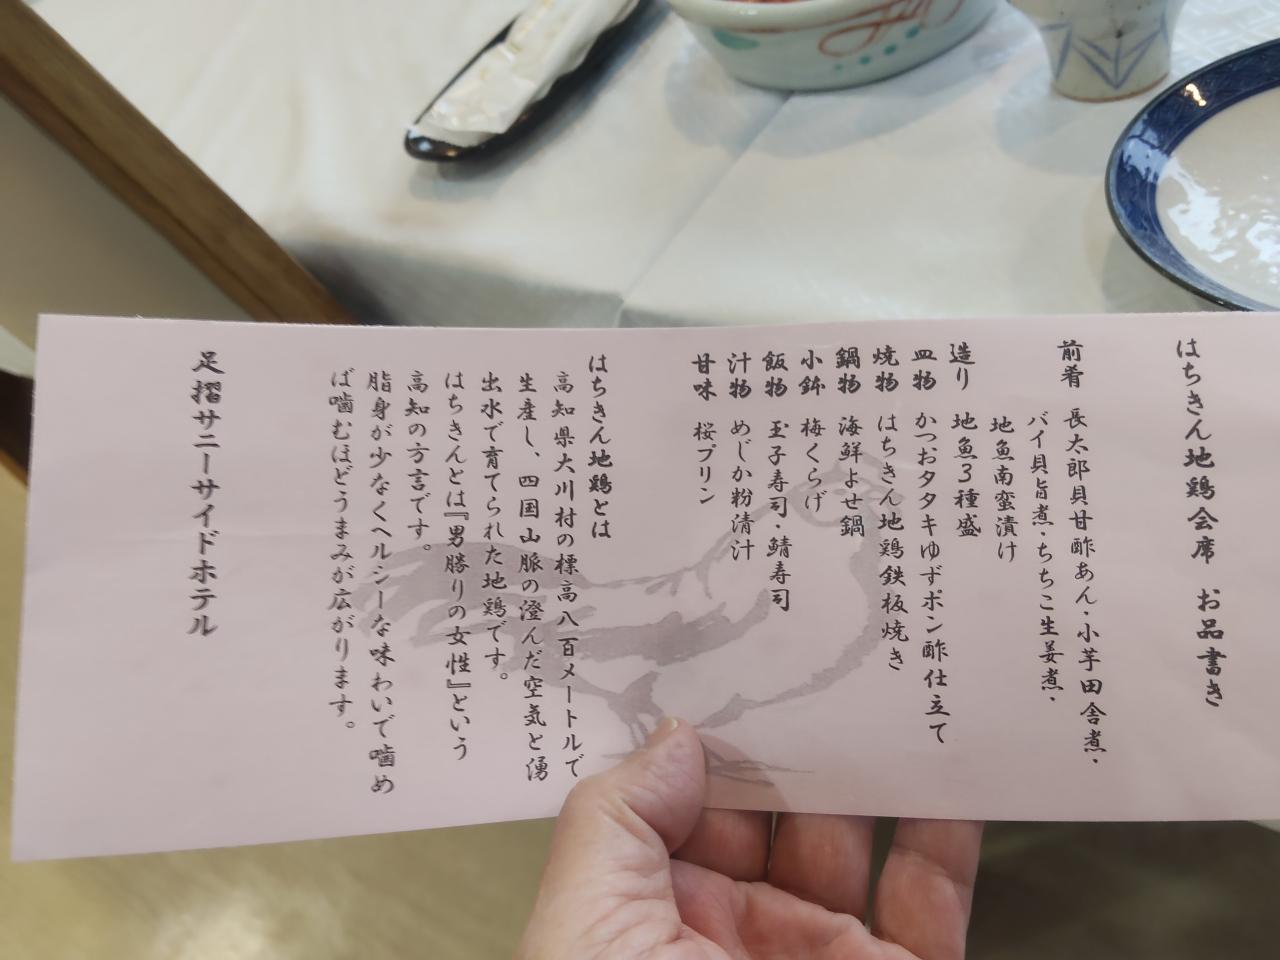 はちきん地鶏会席 お品書き
前肴 長太郎貝甘酢あん・小芋田舎煮・
バイ貝旨煮・ちちこ生姜煮・
地魚南蛮漬け
造り 地魚3種盛
皿物 かつおタタキゆずポン酢仕立て
焼物 はちきん地鶏鉄板焼き
鍋物 海鮮よせ鍋
小鉢 梅くらげ
飯物 玉子寿司・鯖寿司
汁物 めじか粉清汁
甘味 桜プリン
はちきん地鶏とは
高知県大川村の標高八百メートルで
生産し、四国山脈の澄んだ空気と湧
出水で育てられた地鶏です。
はちきんとは『男勝りの女性』という
高知の方言です。
脂身が少なくヘルシーな味わいで噛め
ば噛むほどうまみが広がります。
足摺サニーサイドホテル